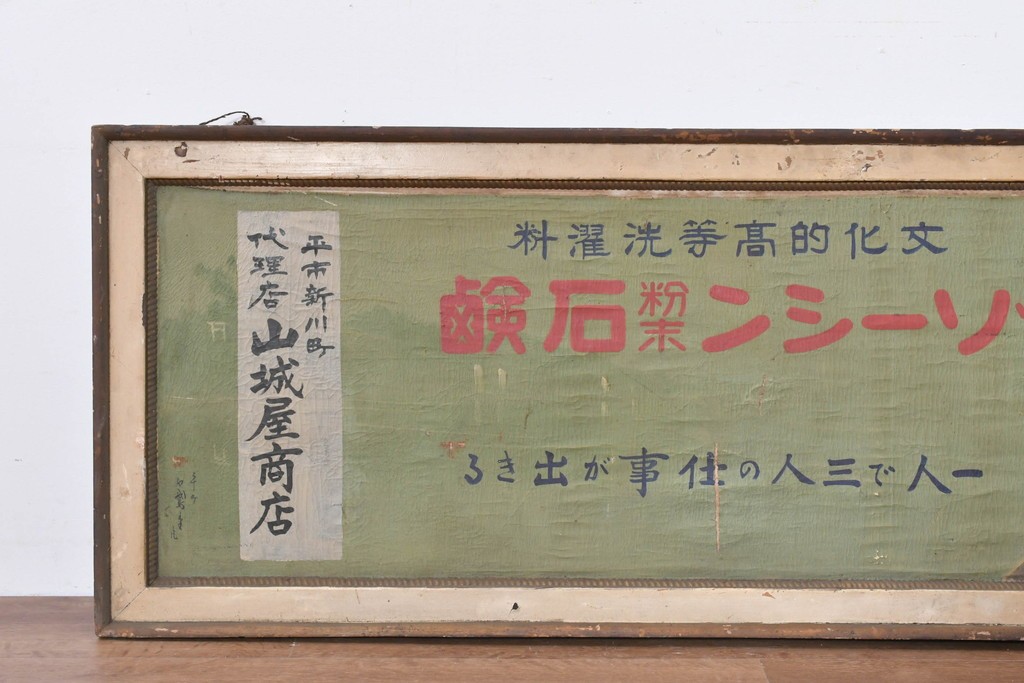 文化的高等洗濯料
ソーシン粉末石鹸
一人で三人の仕事が出きる
平市新川町
代理店 山城屋商店